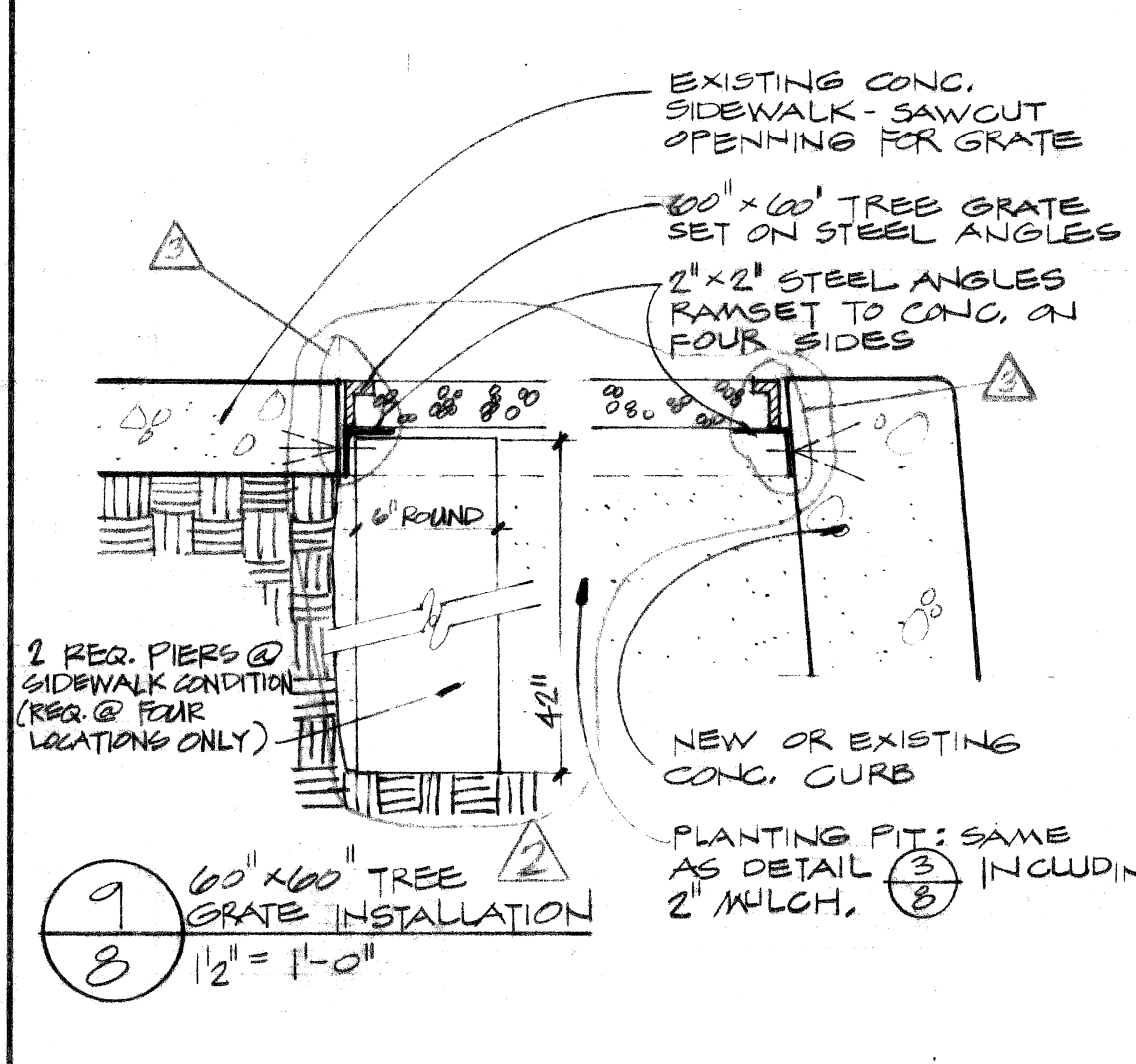 EXISTING CONC.
SIDEWALK - SAWCUT
OPENNING FOR GRATE
60" x 60' TREE GRATE
SET ON STEEL ANGLES
3
2" x 2" STEEL ANGLES
RAMSET TO CONC. ON
FOUR SIDES
3
6" ROUND
2 REQ. PIERS @
SIDEWALK CONDITION
(REQ. @ FOUR
LOCATIONS ONLY)
42"
NEW OR EXISTING
CONC. CURB
PLANTING PIT: SAME
AS DETAIL 3/8 INCLUDIN
2" MULCH.
2
9
8
60" x 60" TREE
GRATE INSTALLATION
1'2" = 1'-0"